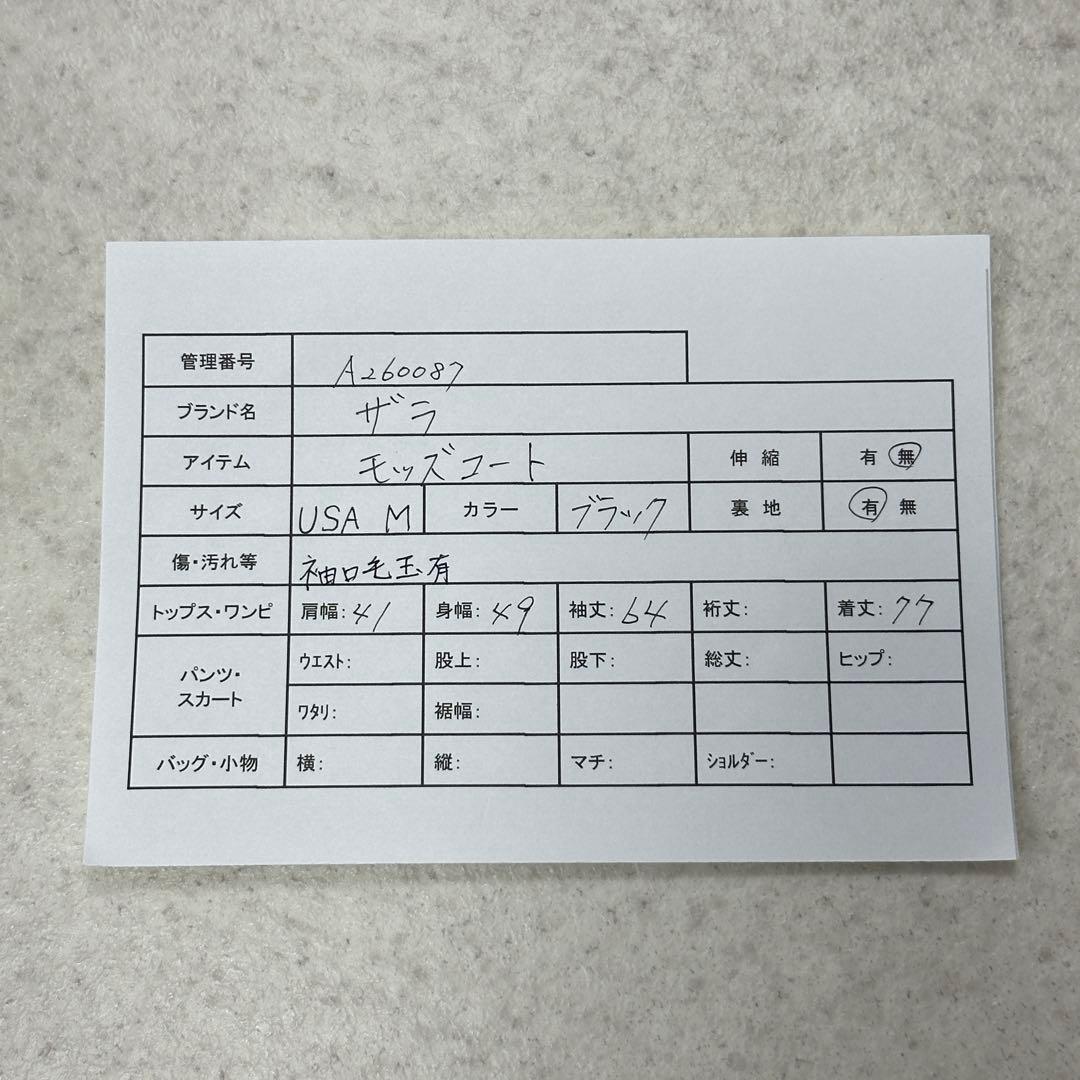 管理番号 A260087
ブランド名 ザラ
アイテム モッズコート 伸縮 有 無
サイズ USA M カラー ブラック 裏地 有 無
傷・汚れ等 袖口毛玉有
トップス・ワンピ 肩幅:41 身幅:49 袖丈:64 裄丈: 着丈:77
パンツ・スカート ウエスト: 股上: 股下: 総丈: ヒップ:
ワタリ: 裾幅:
バッグ・小物 横: 縦: マチ: ショルダー: